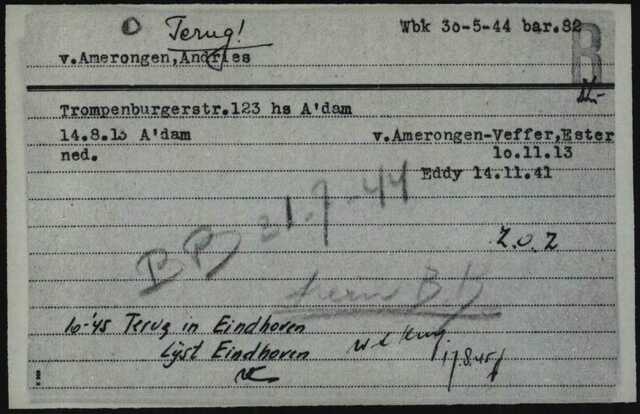 Terug!
Wbk 30-5-44 bar.82
v.Amerongen,Andries
B
Trompenburgerstr.123 hs A'dam
14.8.13 A'dam
v.Amerongen-Veffer,Ester
ned.
10.11.13
Eddy 14.11.41
21.7-44
Z.O.Z
10-'45 Terug in Eindhoven
Lijst Eindhoven
17.8.45